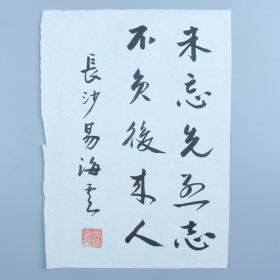 未忘先烈志
不负後来人
長沙易海云